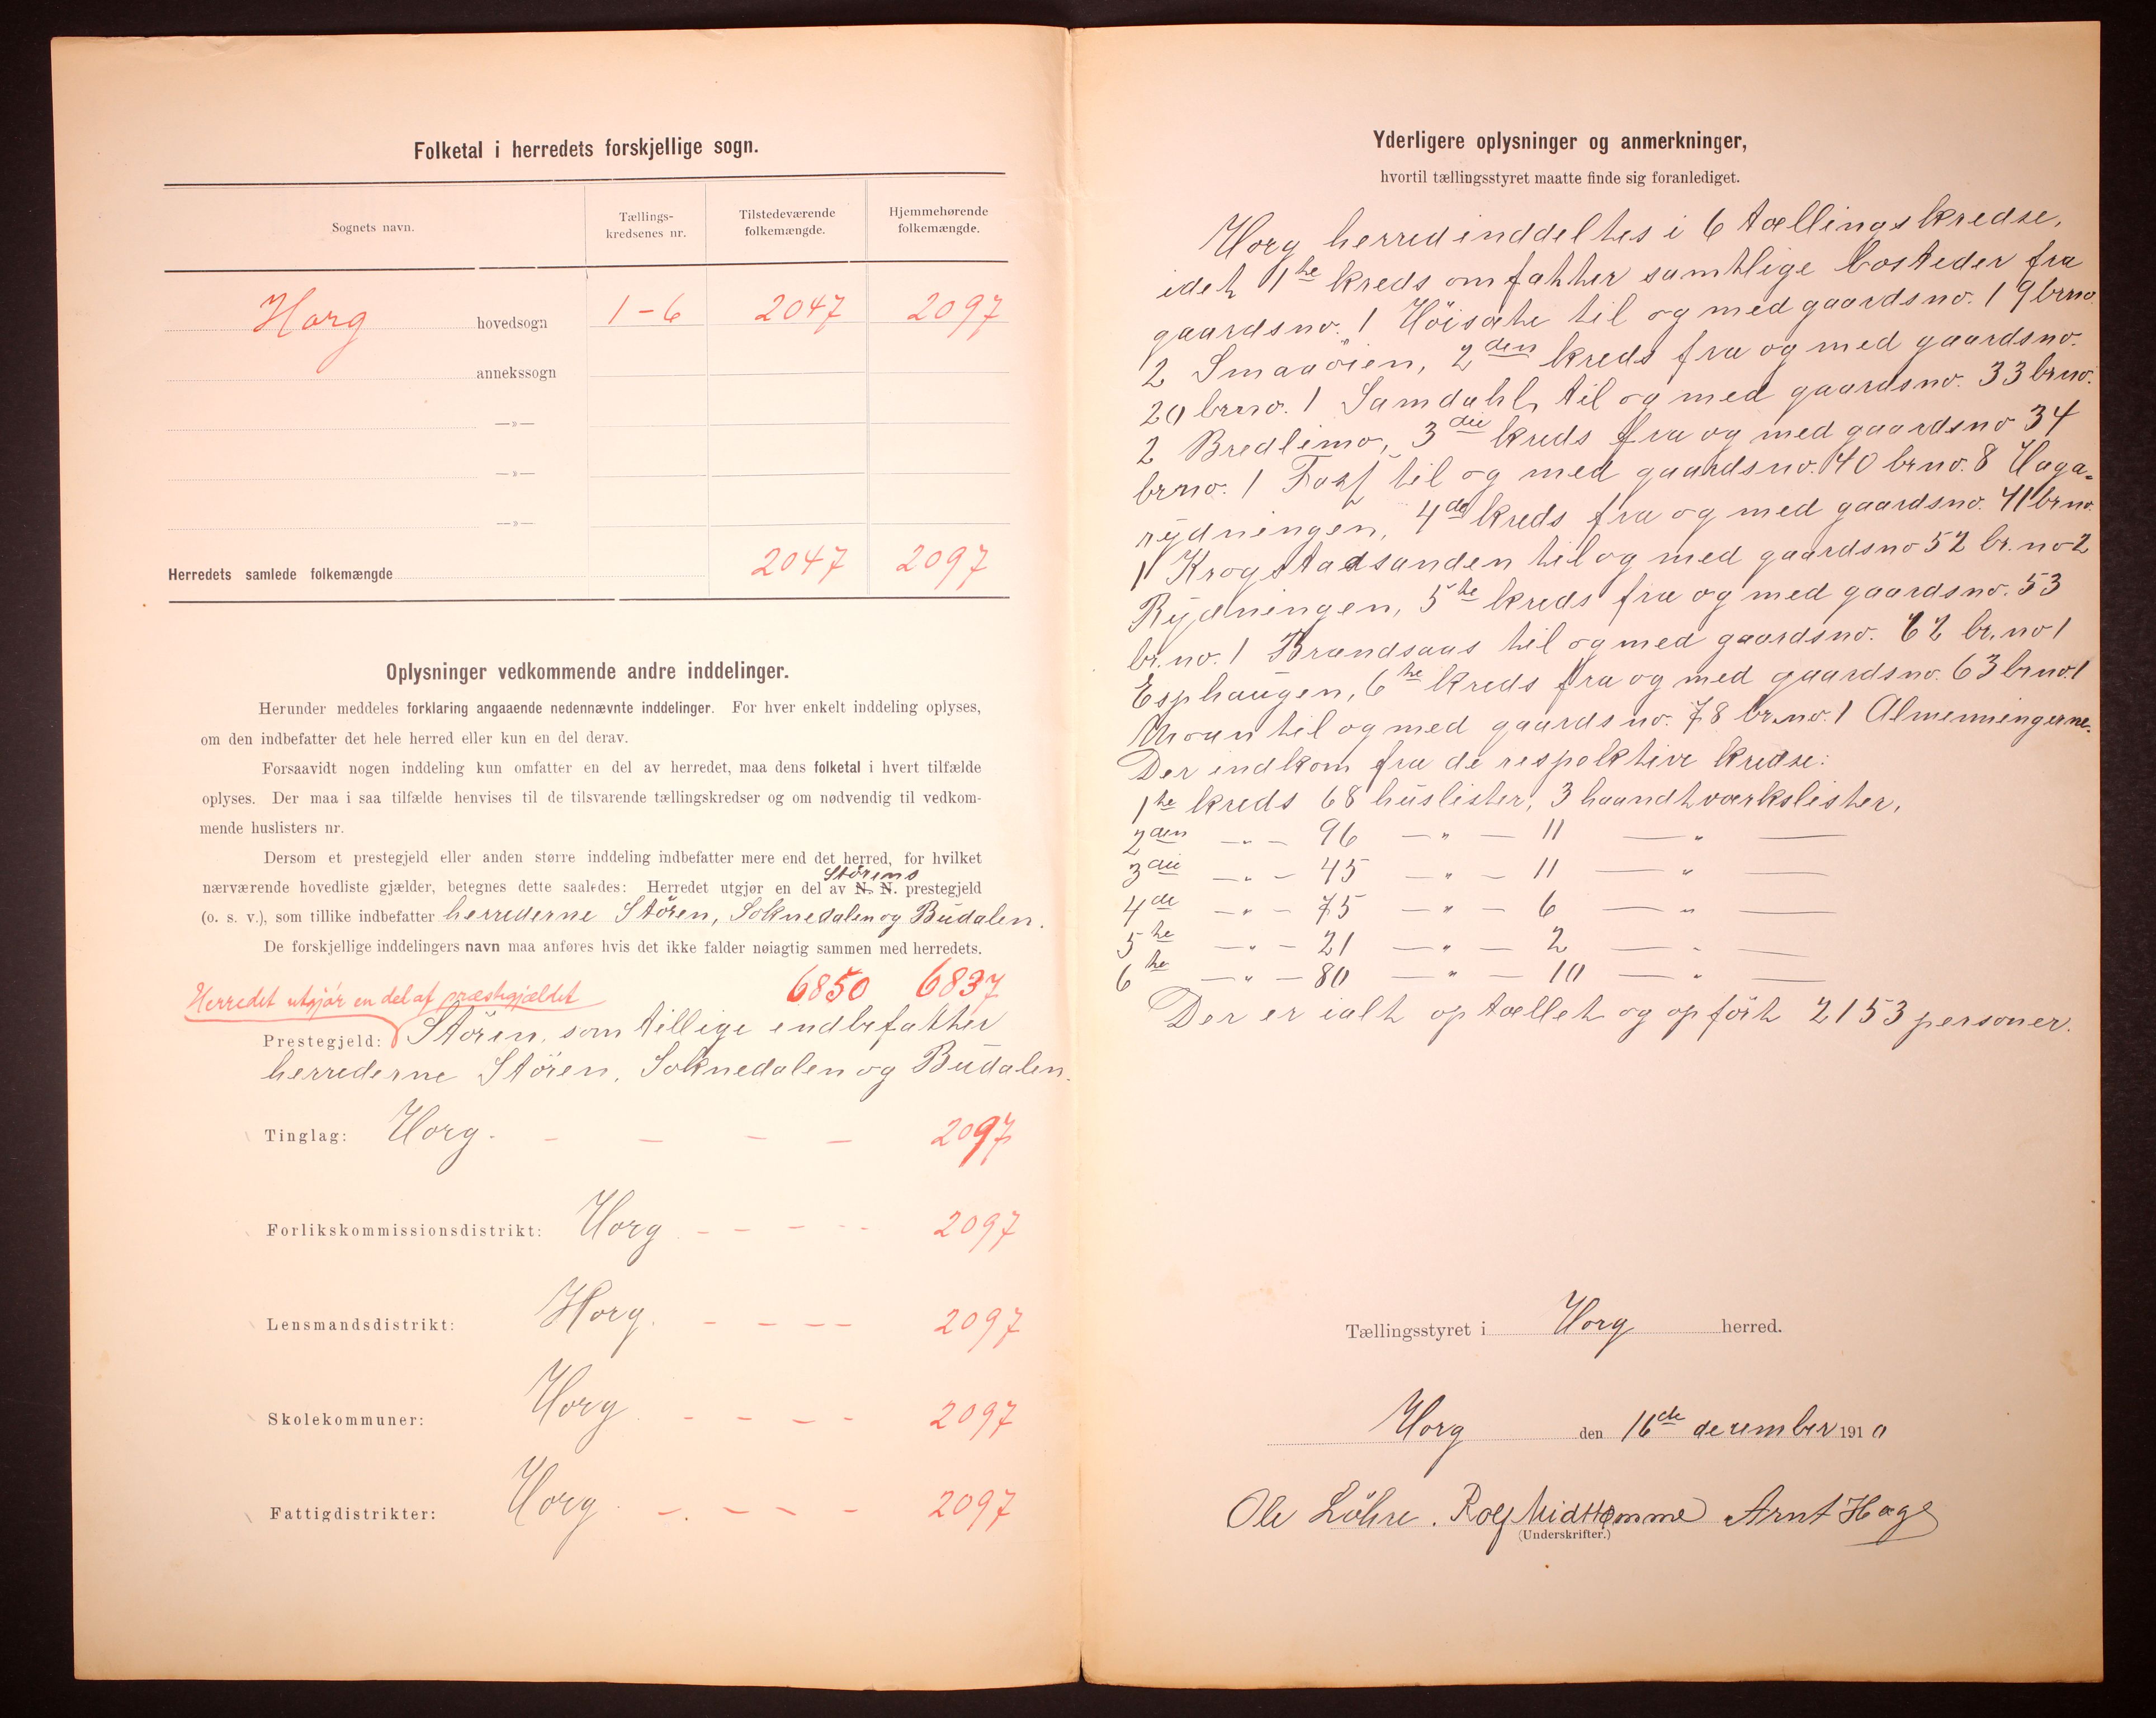 Folketal i herredets forskjellige sogn.
Sognets navn. Tællings-kredsenes nr. Tilstedeværende folkemængde. Hjemmehørende folkemængde.
Horg hovedsogn 1-6 2047 2097
annekssogn
—»—
—»—
—»—
Herredets samlede folkemængde 2047 2097
Oplysninger vedkommende andre inddelinger.
Herunder meddeles forklaring angaaende nedennævnte inddelinger. For hver enkelt inddeling oplyses,
om den indbefatter det hele herred eller kun en del derav.
Forsaavidt nogen inddeling kun omfatter en del av herredet, maa dens folketal i hvert tilfælde
oplyses. Der maa i saa tilfælde henvises til de tilsvarende tællingskredser og om nødvendig til vedkom-
mende huslisters nr.
Dersom et prestegjeld eller anden større inddeling indbefatter mere end det herred, for hvilket
Störens
nærværende hovedliste gjælder, betegnes dette saaledes: Herredet utgjør en del av N. N. prestegjeld
(o. s. v.), som tillike indbefatter herrederne Stören, Soknedalen og Budalen.
De forskjellige inddelingers navn maa anføres hvis det ikke falder nøiagtig sammen med herredets.
Herredet utgjör en del af præstegjældet 6850 6837
Prestegjeld: Stören, som tillige indbefatter
herrederne Stören, Soknedalen og Budalen.
Tinglag: Horg. — — — — 2097
Forlikskommissionsdistrikt: Horg - - - - - 2097
Lensmandsdistrikt: Horg. - - - - 2097
Skolekommuner: Horg - - - - 2097
Fattigdistrikter: Horg. - - - - 2097
Yderligere oplysninger og anmerkninger,
hvortil tællingsstyret maatte finde sig foranlediget.
Horg herred inddeltes i 6 tællingskredse,
idet 1te kreds omfatter samtlige bosteder fra
gaardsno. 1 Höisæte til og med gaardsno. 19 brno.
2 Smaaöien, 2den kreds fra og med gaardsno.
20 brno. 1 Samdahl til og med gaardsno. 33 brno.
2 Bredlimo, 3die kreds fra og med gaardsno 34
brno. 1 Foss til og med gaardsno. 40 brno. 8 Haga-
rydningen, 4de kreds fra og med gaardsno. 41 brno.
1 Krogstadsanden til og med gaardsno 52 br. no 2
Rydningen, 5te kreds fra og med gaardsno. 53
br. no. 1 Brandsaas til og med gaardsno. 62 br. no 1
Esphaugen, 6te kreds fra og med gaardsno. 63 brno. 1
Moan til og med gaardsno. 78 br. no. 1 Almenningerne.
Der indkom fra de respektive kredse:
1te kreds 68 huslister, 3 haandtværkslister,
2den —„— 96 —„— 11 —„—
3die —„— 45 —„— 11 —„—
4de —„— 75 —„— 6 —„—
5te —„— 21 —„— 2 —„—
6te —„— 80 —„— 10 —„—
Der er ialt optællet og opfört 2153 personer.
Tællingsstyret i Horg herred.
Horg den 16de december 1910
Ole Löhre. Rolf Midttömme Arnt Hage
(Underskrifter.)